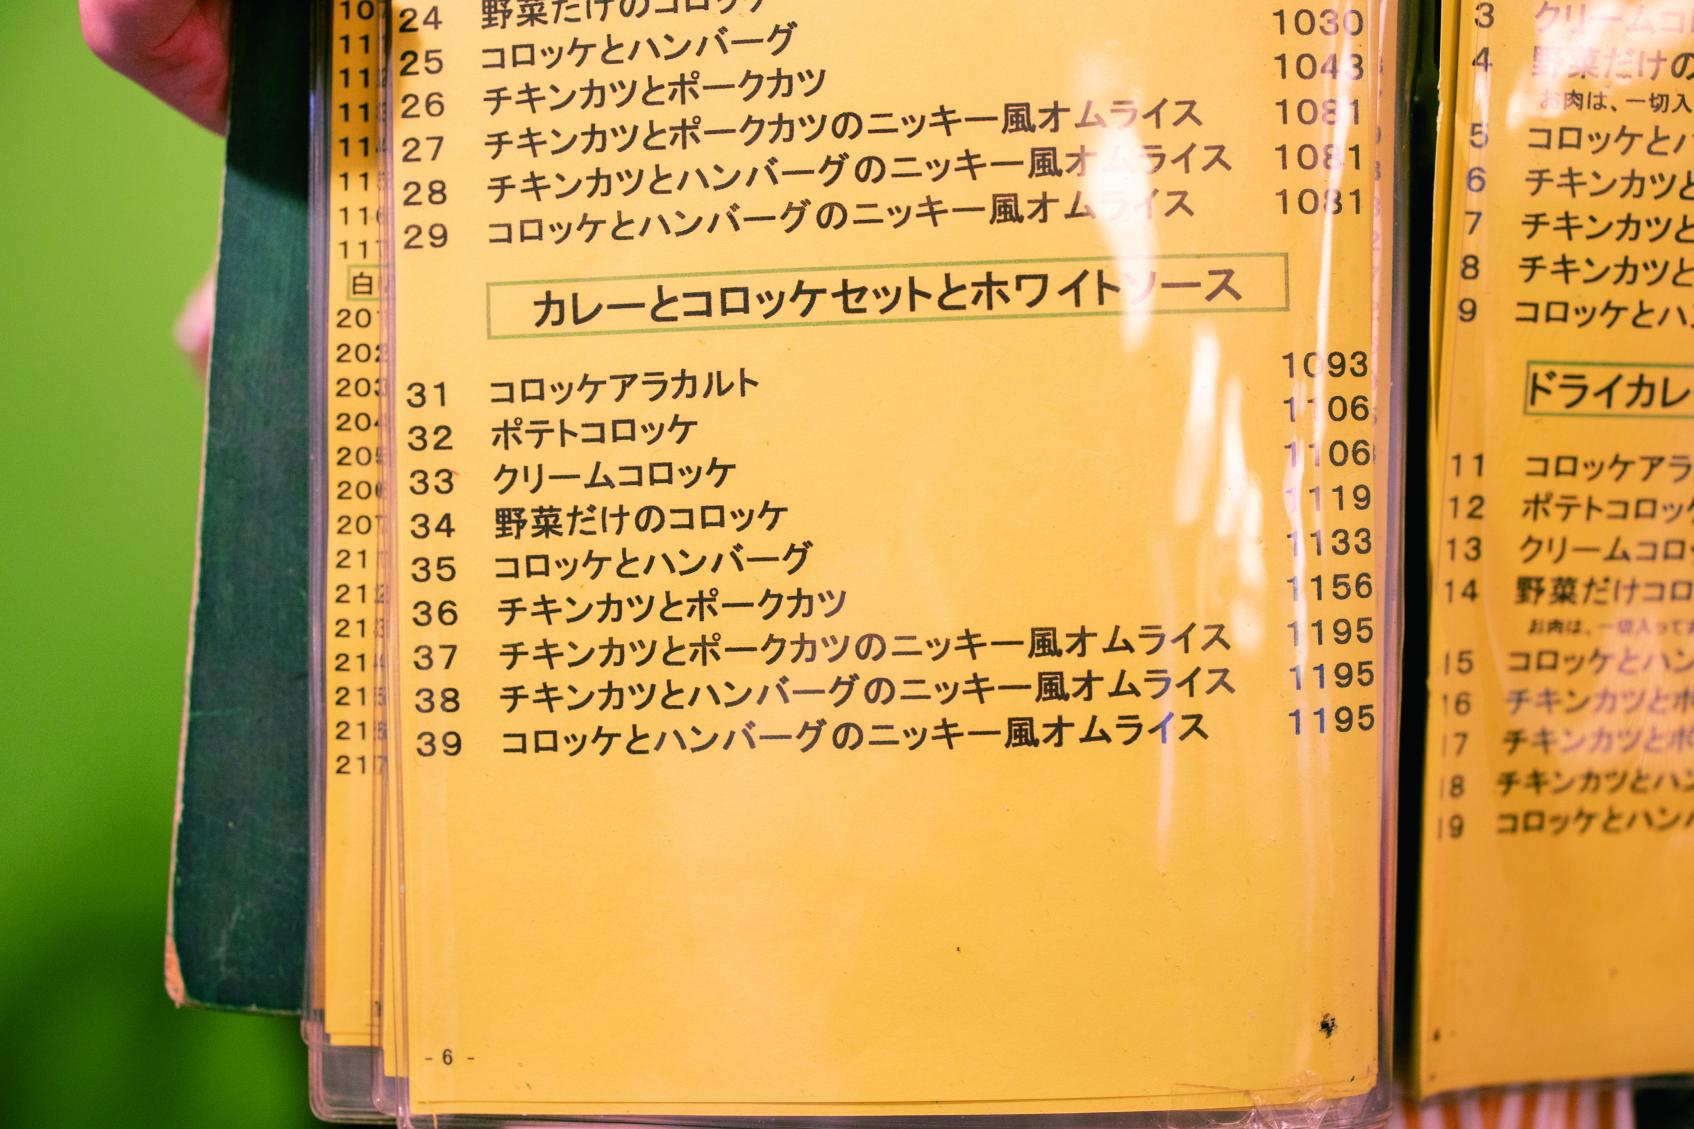 24 野菜だけのコロッケ 1030
25 コロッケとハンバーグ 1043
26 チキンカツとポークカツ 1081
27 チキンカツとポークカツのニッキー風オムライス 1081
28 チキンカツとハンバーグのニッキー風オムライス 1081
29 コロッケとハンバーグのニッキー風オムライス
カレーとコロッケセットとホワイトソース
31 コロッケアラカルト 1093
32 ポテトコロッケ 1106
33 クリームコロッケ 1106
34 野菜だけのコロッケ 1119
35 コロッケとハンバーグ 1133
36 チキンカツとポークカツ 1156
37 チキンカツとポークカツのニッキー風オムライス 1195
38 チキンカツとハンバーグのニッキー風オムライス 1195
39 コロッケとハンバーグのニッキー風オムライス 1195
- 6 -
3 クリームコ
4 野菜だけの
お肉は、一切入
5 コロッケと
6 チキンカツと
7 チキンカツと
8 チキンカツと
9 コロッケとハ
ドライカレ
11 コロッケアラ
12 ポテトコロッケ
13 クリームコロ
14 野菜だけコロ
お肉は、一切入って
15 コロッケとハン
16 チキンカツとポ
17 チキンカツとポ
18 チキンカツとハン
19 コロッケとハン